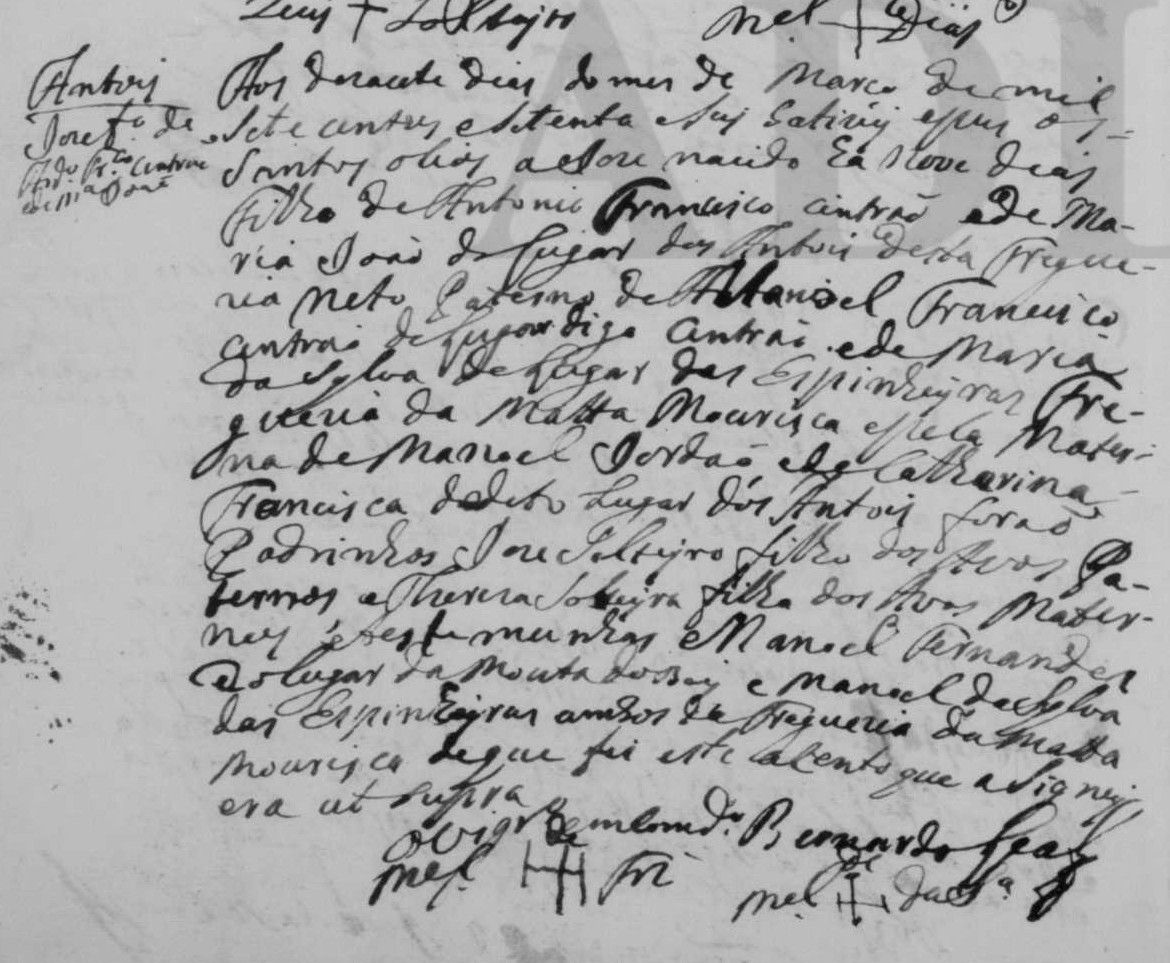 Luis + Solteyro Mel + Dias
Antois
Joze fo de
Anto Fr.co Cintrao
e de Ma João
Aos dezacete dias do mes de Março de mil
Sete centos e Setenta e Seis batizei e pus os
Santos olios a Joze nacido ha Nove dias
Filho de Antonio Francisco Cintrão e de Ma-
ria João do Lugar dos Antois desta Fregue-
zia neto Paterno de Manoel Francisco
Cintrão do Lugar digo Cintrão e de Maria
da Sylva do Lugar das Espinheyras Fre-
guezia da Matta Mourisca e pela Mater-
na de Manoel Jordão e de Catharina
Francisca do dito Lugar dos Antois forão
Padrinhos Joze Solteyro filho dos Avos Pa-
ternos e Thereza Solteyra filha dos Avos Mater-
nos e testemunhas Manoel Fernandes
do lugar da Mouta do Boy e Manoel da Sylva
das Espinheyras ambos da Freguezia da Matta
Mourisca de que fis este acento que asigney
era ut supra
o Vigro Bernardo Leal
Mel + Frz Mel + da Sa
ADL